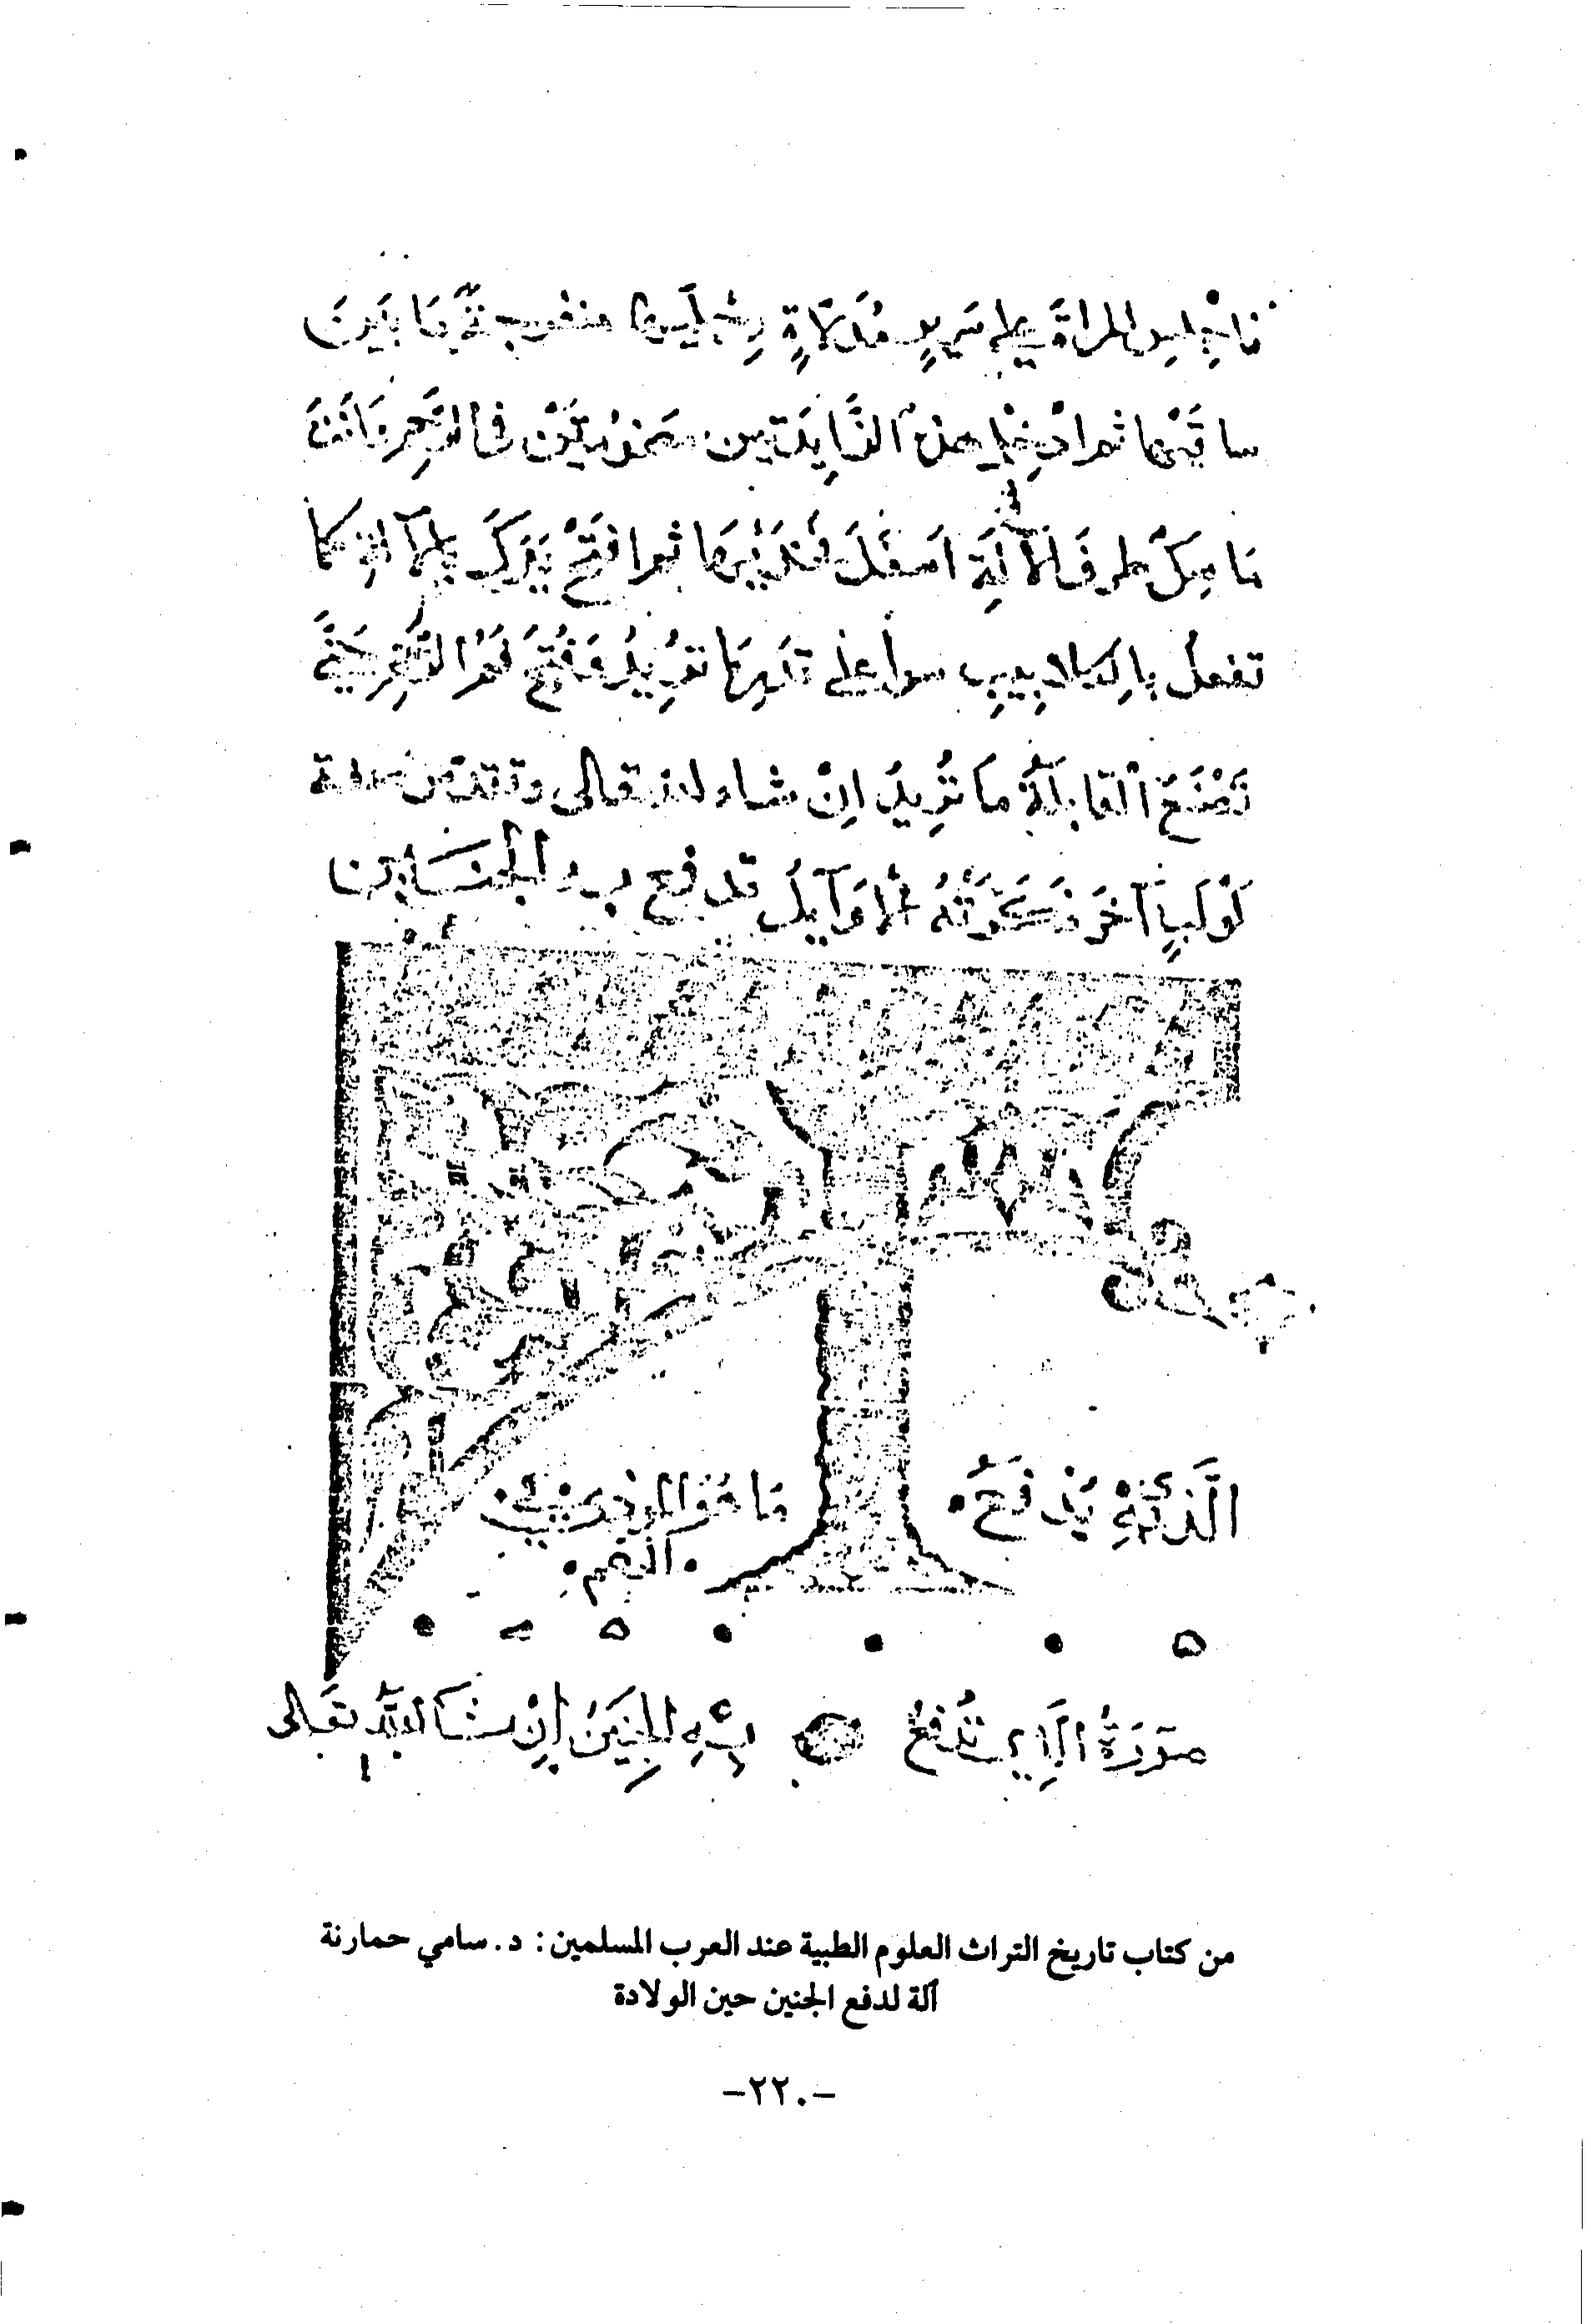 فاجلس المراة على سرير مدلاة رجليها منفرجة ما بين
ساقيها ثم ادخل الزايدتين مضمومتين في الرحم وانت
ماسك طرف الآلة اسفل فخذيها ثم افتح يدك كما
تفعل بالكلاليب سوا على قدر ما تريد فتح فم الرحم حتى
تصنع القابلة ما تريد ان شا الله تعالى
لولب آخر ذكرته الاوايل
الذي يدفع
ما هو
الفم
صورة الذي تدفع به الجنين ان شا الله تعالى
من كتاب تاريخ التراث العلوم الطبية عند العرب المسلمين: د. سامي حمارنة
آلة لدفع الجنين حين الولادة
-٢٢٠-